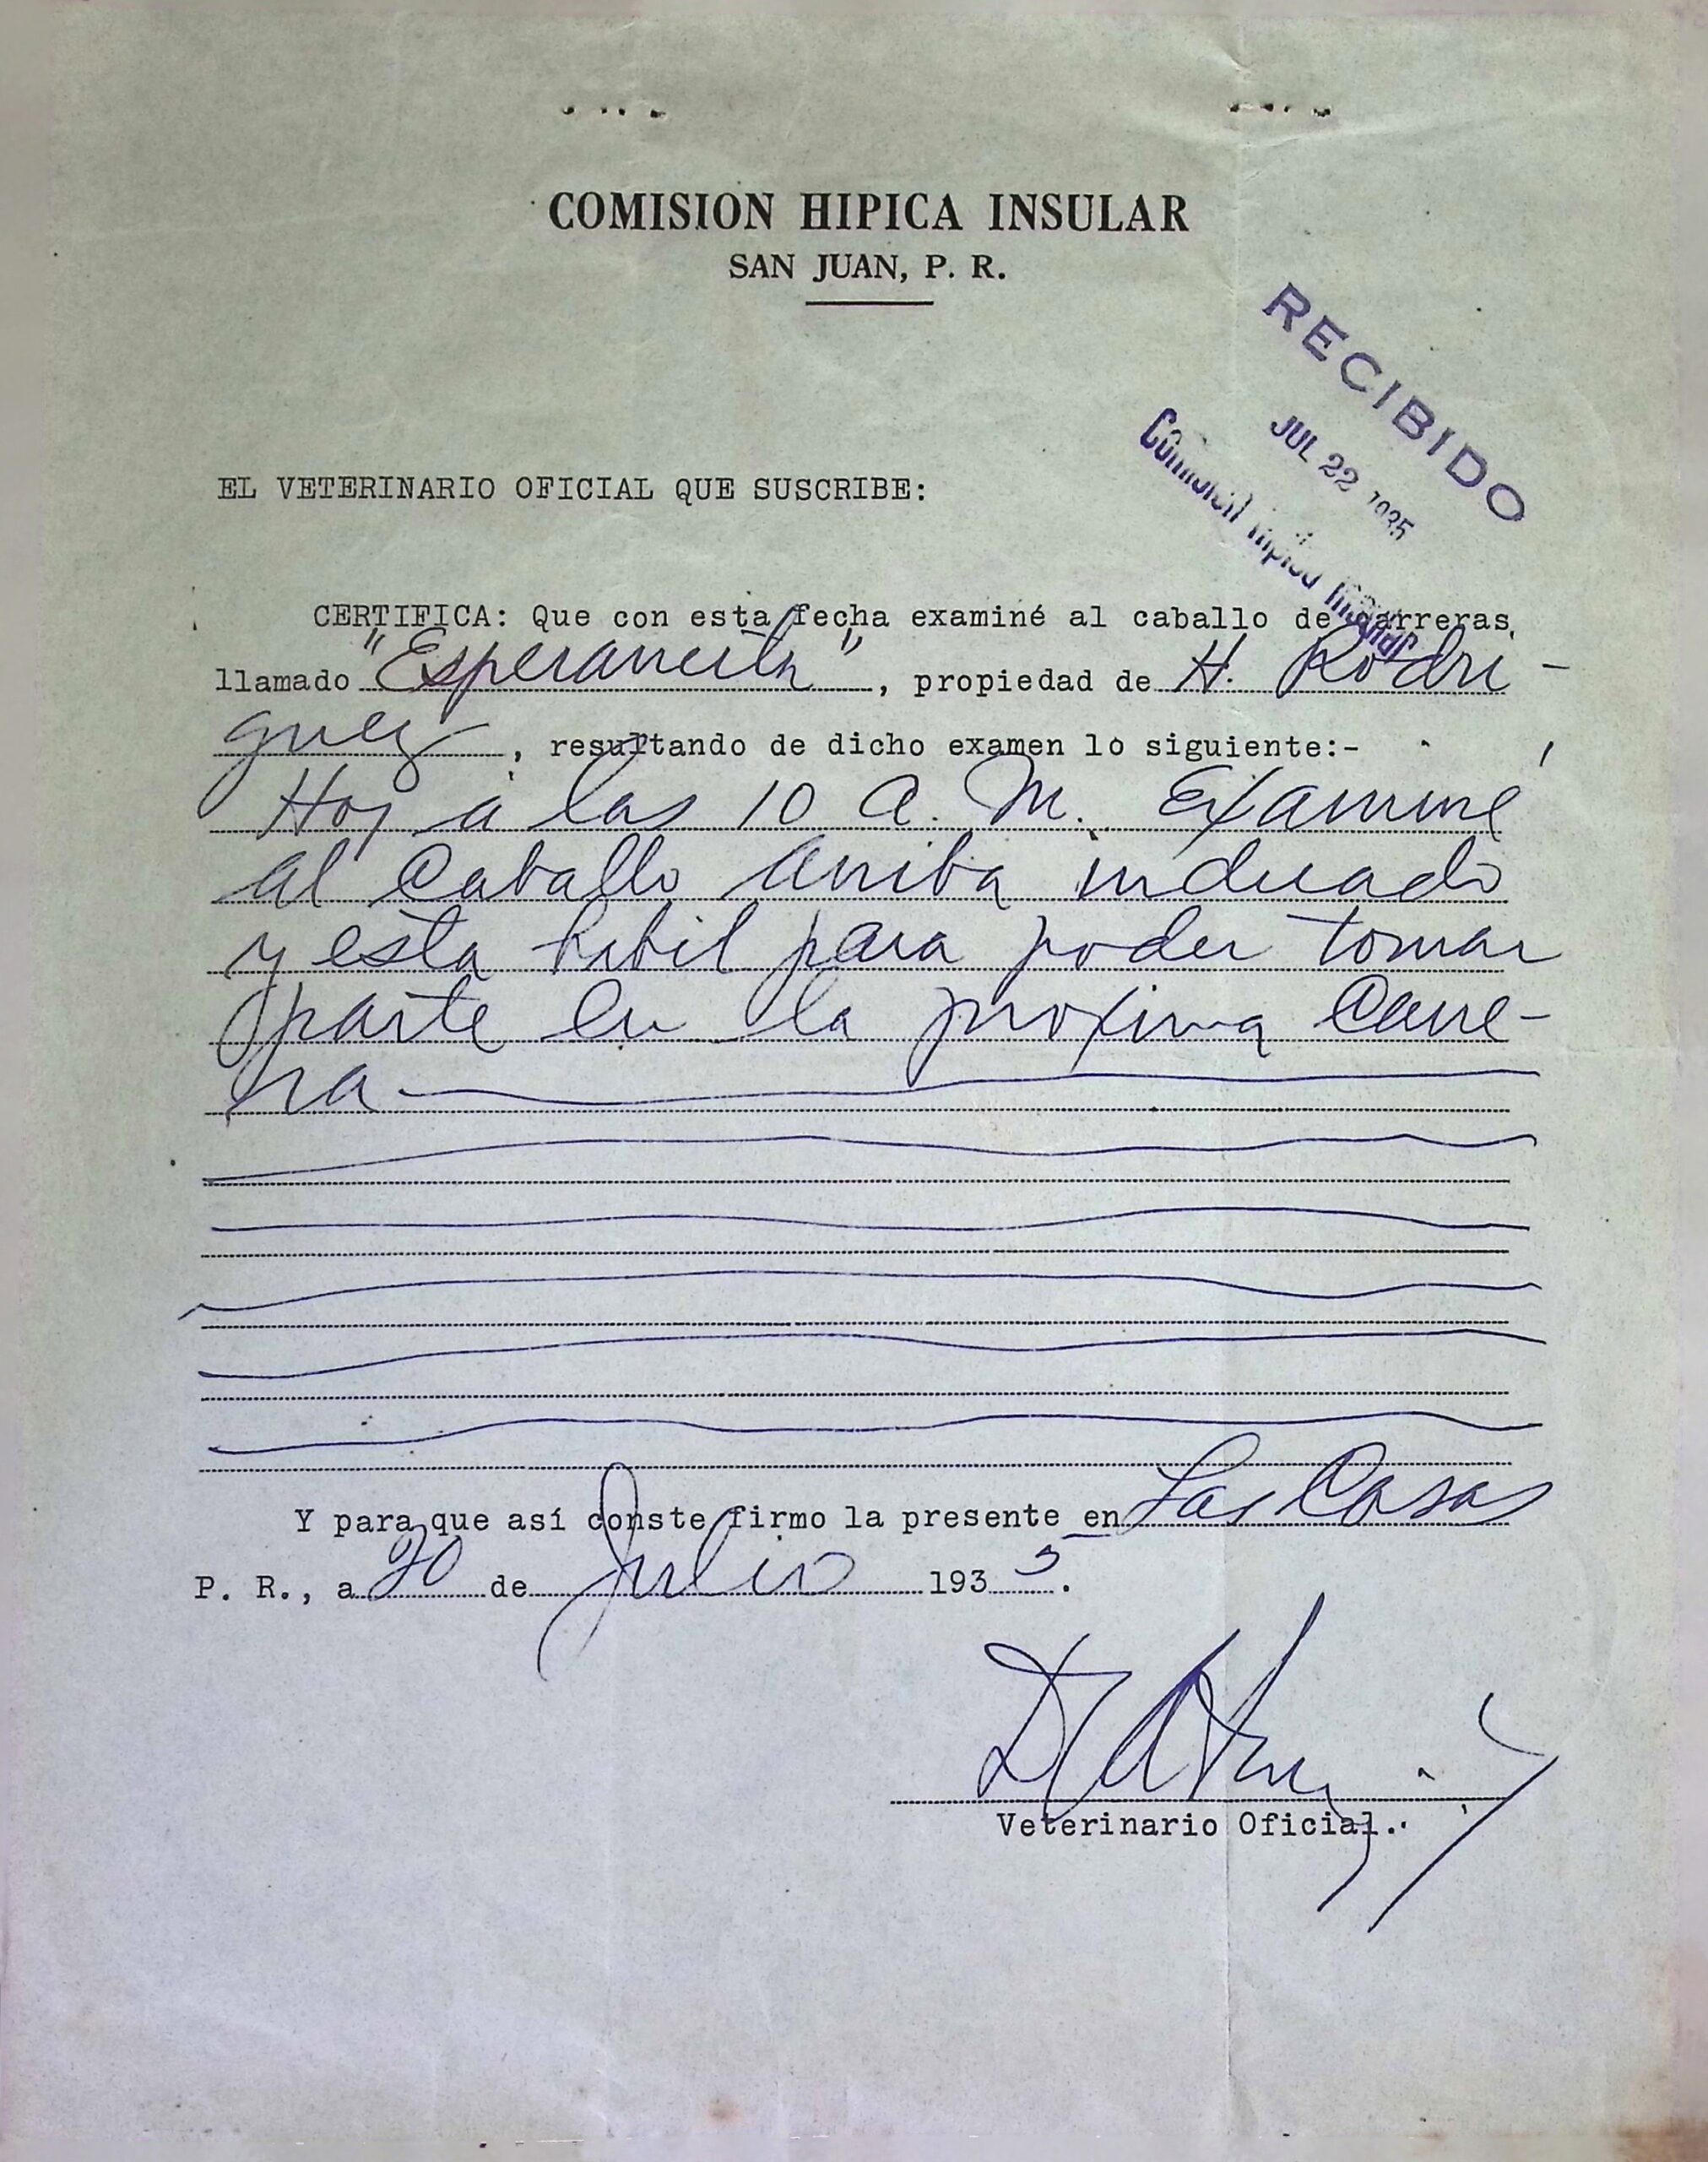 COMISION HIPICA INSULAR
SAN JUAN, P. R.
RECIBIDO
JUL 22 1935
Comision Hipica Insular
EL VETERINARIO OFICIAL QUE SUSCRIBE:
CERTIFICA: Que con esta fecha examiné al caballo de carreras,
llamado "Esperancita", propiedad de H. Rodri-
guez, resultando de dicho examen lo siguiente:-
Hoy a las 10 A. M. Examiné
al Caballo arriba indicado
y esta habil para poder tomar
parte en la proxima Carre-
ra
Y para que así conste firmo la presente en Las Casas
P. R., a 20 de Julio 1935.
Veterinario Oficial.